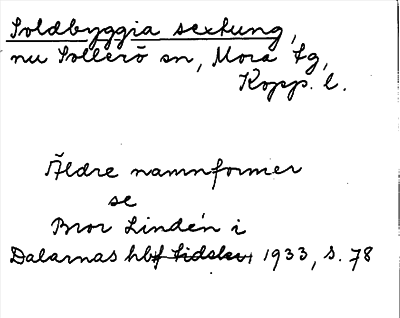 Soldbyggia sextung,
nu Sollerö sn, Mora tg,
Kopp. l.
Äldre namnformer
se
Bror Lindén i
Dalarnas hbf tidskr, 1933, s. 78